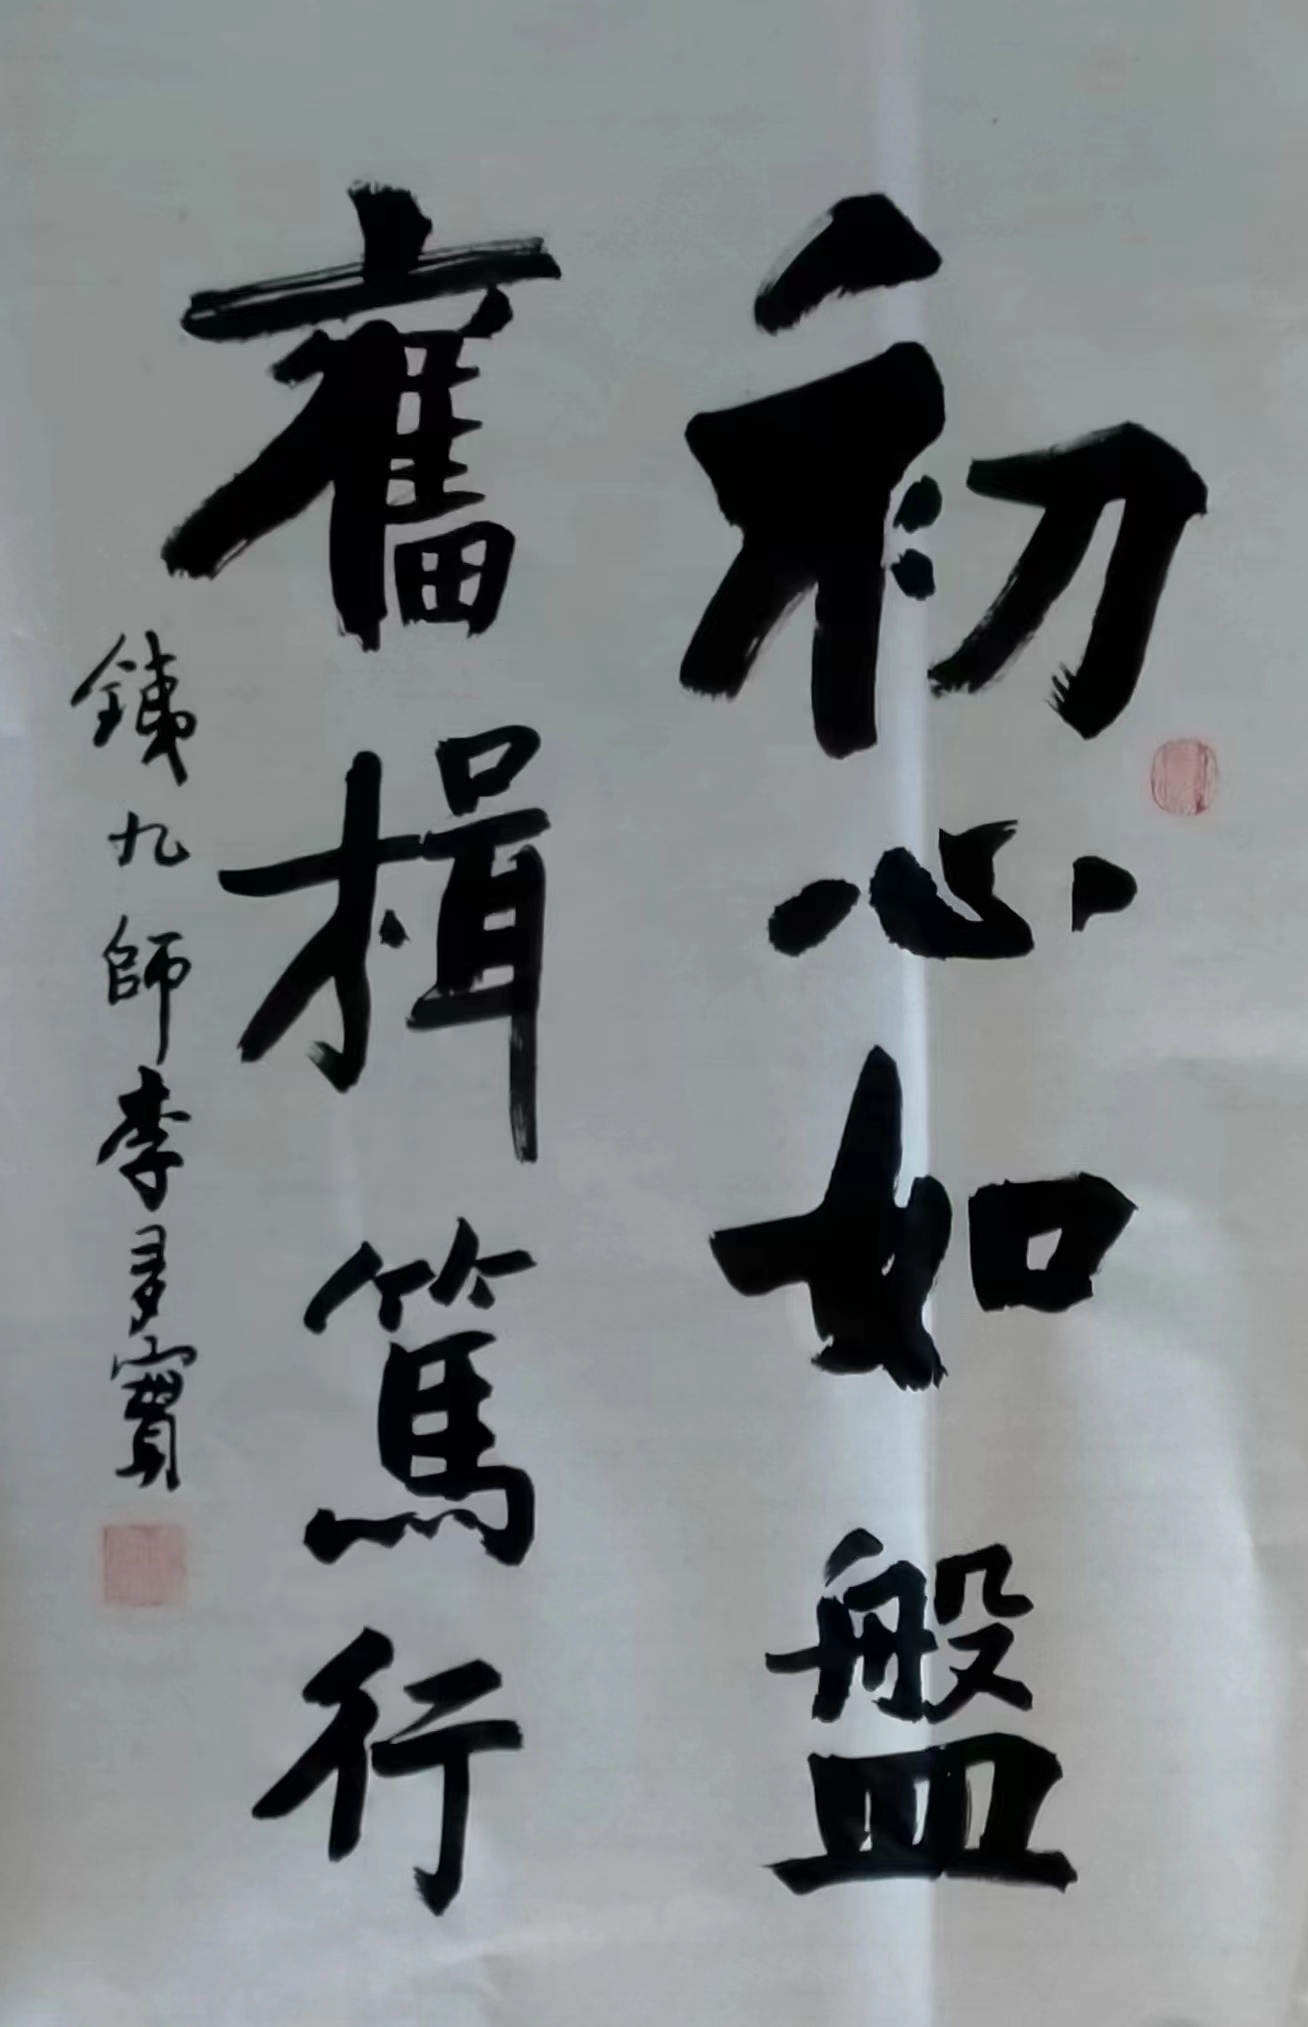 初心如盤
奮楫篤行
鐵九師李多寶